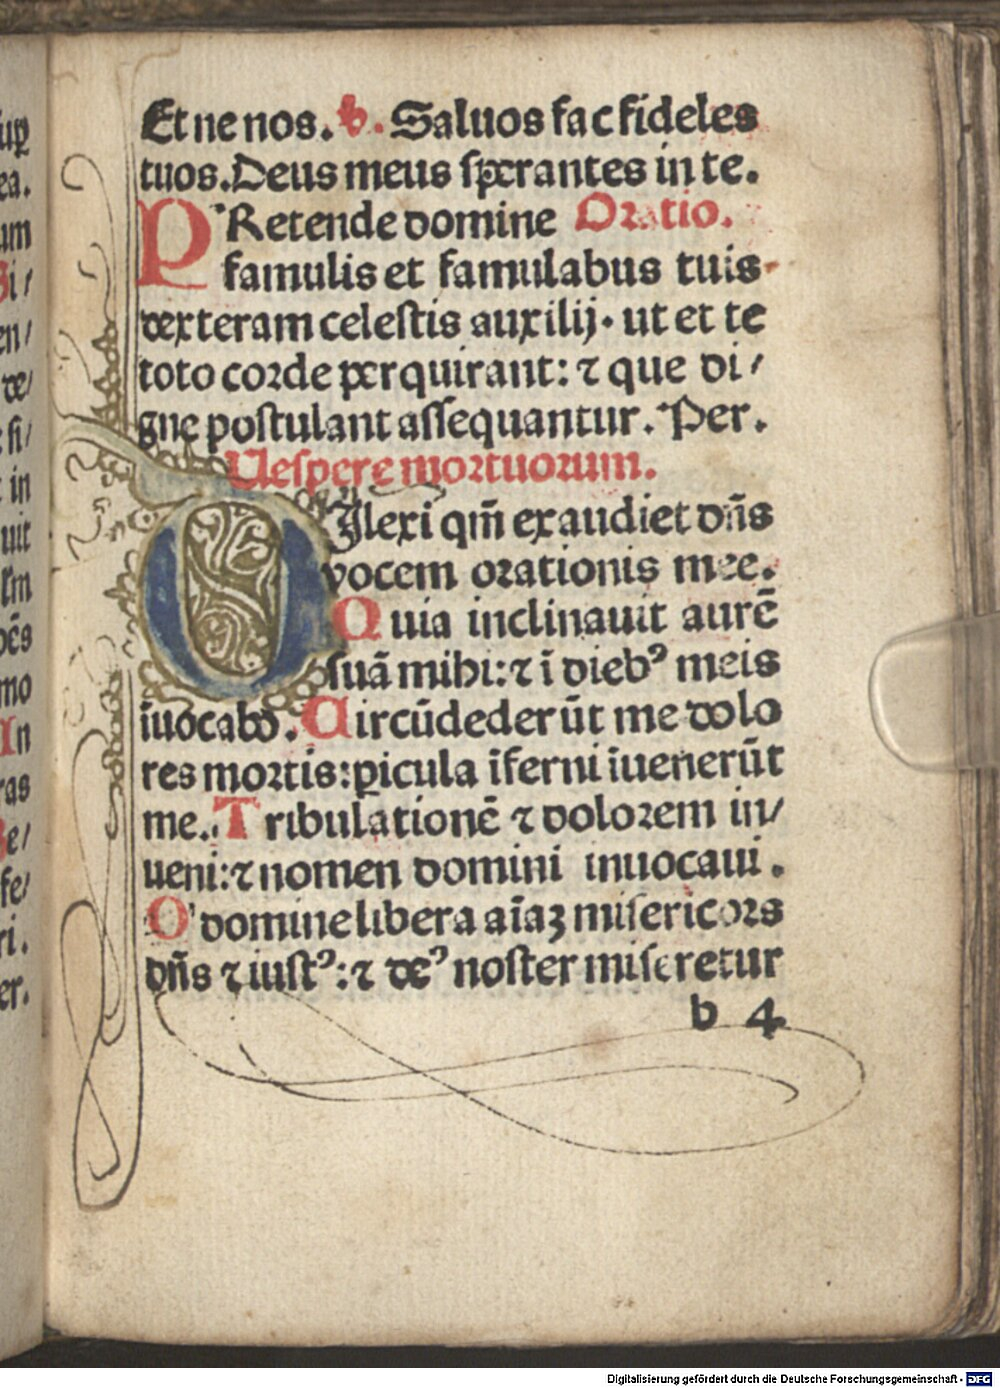 Et ne nos. ℣. Saluos fac fideles
tuos. Deus meus sperantes in te.
PRetende domine Oratio.
famulis et famulabus tuis
dexteram celestis auxilij. ut et te
toto corde perquirant: ⁊ que di/
gne postulant assequantur. Per.
Uespere mortuorum.
DIlexi qm̄ exaudiet dn̄s
vocem orationis mee.
Quia inclinauit aurē
suā mihi: ⁊ ī diebꝰ meis
īuocabo. Circūdederūt me dolo
res mortis: ꝑicula īferni īuenerūt
me. Tribulationē ⁊ dolorem in/
ueni: ⁊ nomen domini inuocaui.
O domine libera aīaꝫ misericors
dn̄s ⁊ iustꝰ: ⁊ deꝰ noster miseretur
b 4
Digitalisierung gefördert durch die Deutsche Forschungsgemeinschaft - DFG